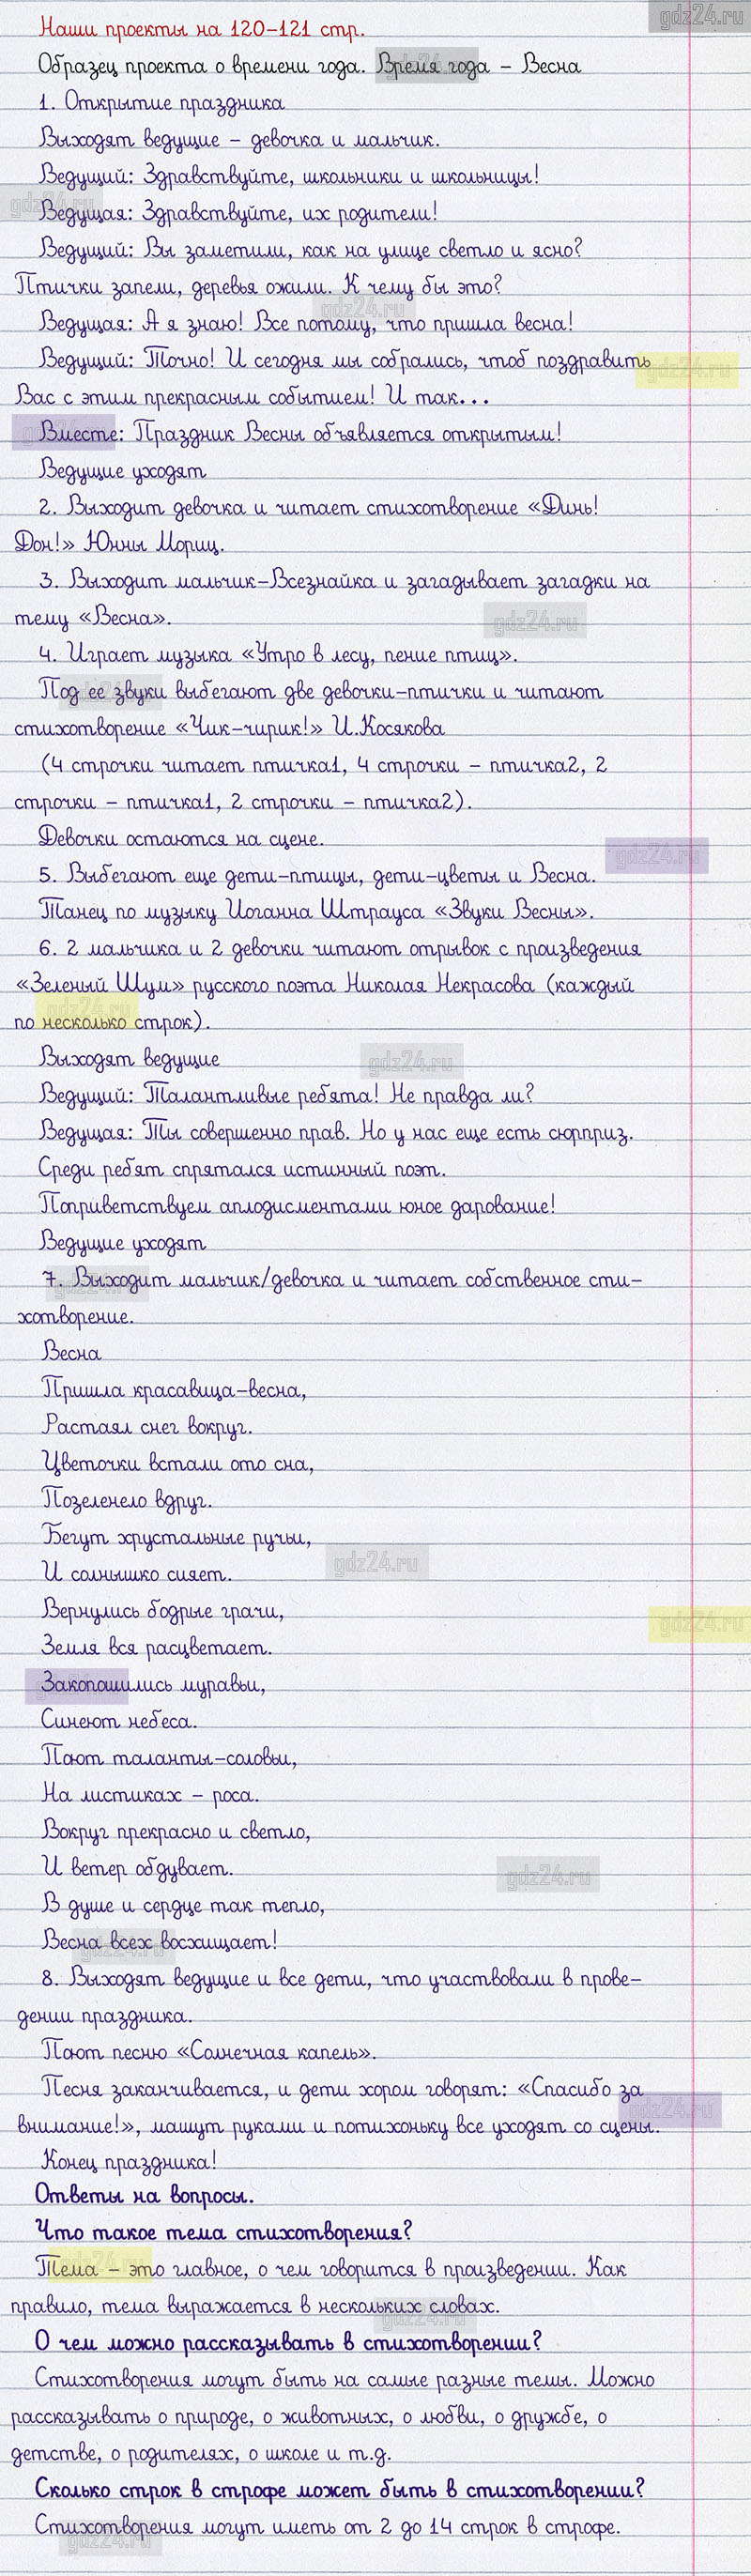 gdz24.ru
Наши проекты на 120-121 стр.
Образец проекта о времени года. Время года – Весна
1. Открытие праздника
Выходят ведущие – девочка и мальчик.
Ведущий: Здравствуйте, школьники и школьницы!
gdz24.ru
Ведущая: Здравствуйте, их родители!
Ведущий: Вы заметили, как на улице светло и ясно?
Птички запели, деревья ожили. К чему бы это?
gdz24.ru
Ведущая: А я знаю! Все потому, что пришла весна!
Ведущий: Точно! И сегодня мы собрались, чтоб поздравить
gdz24.ru
Вас с этим прекрасным событием! И так...
Вместе: Праздник Весны объявляется открытым!
Ведущие уходят
2. Выходит девочка и читает стихотворение «Динь!
Дон!» Юнны Мориц.
3. Выходит мальчик-Всезнайка и загадывает загадки на
тему «Весна».
gdz24.ru
4. Играет музыка «Утро в лесу, пение птиц».
Под ее звуки выбегают две девочки-птички и читают
стихотворение «Чик-чирик!» И.Косякова
(4 строчки читает птичка1, 4 строчки – птичка2, 2
строчки – птичка1, 2 строчки – птичка2).
Девочки остаются на сцене.
gdz24.ru
5. Выбегают еще дети-птицы, дети-цветы и Весна.
Танец по музыку Иоганна Штрауса «Звуки Весны».
6. 2 мальчика и 2 девочки читают отрывок с произведения
«Зеленый Шум» русского поэта Николая Некрасова (каждый
gdz24.ru
по несколько строк).
Выходят ведущие
gdz24.ru
Ведущий: Талантливые ребята! Не правда ли?
Ведущая: Ты совершенно прав. Но у нас еще есть сюрприз.
Среди ребят спрятался истинный поэт.
Поприветствуем аплодисментами юное дарование!
Ведущие уходят
7. Выходит мальчик/девочка и читает собственное сти-
хотворение.
Весна
Пришла красавица-весна,
Растаял снег вокруг.
Цветочки встали ото сна,
Позеленело вдруг.
Бегут хрустальные ручьи,
gdz24.ru
И солнышко сияет.
Вернулись бодрые грачи,
gdz24.ru
Земля вся расцветает.
Закопошились муравьи,
Синеют небеса.
Поют таланты-соловьи,
На листиках – роса.
Вокруг прекрасно и светло,
И ветер обдувает.
gdz24.ru
В душе и сердце так тепло,
Весна всех восхищает!
8. Выходят ведущие и все дети, что участвовали в прове-
дении праздника.
Поют песню «Солнечная капель».
Песня заканчивается, и дети хором говорят: «Спасибо за
gdz24.ru
внимание!», машут руками и потихоньку все уходят со сцены.
Конец праздника!
Ответы на вопросы.
Что такое тема стихотворения?
Тема – это главное, о чем говорится в произведении. Как
правило, тема выражается в нескольких словах.
gdz24.ru
О чем можно рассказывать в стихотворении?
Стихотворения могут быть на самые разные темы. Можно
рассказывать о природе, о животных, о любви, о дружбе, о
детстве, о родителях, о школе и т.д.
Сколько строк в строфе может быть в стихотворении?
Стихотворения могут иметь от 2 до 14 строк в строфе.
gdz24.ru